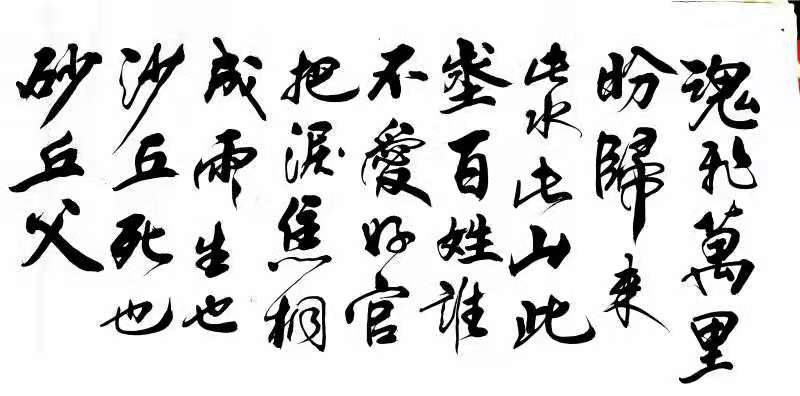 魂飛萬里
盼歸来
此水此山此
埊百姓誰
不愛好官
把淚焦桐
成雨生也
沙丘死也
砂丘父